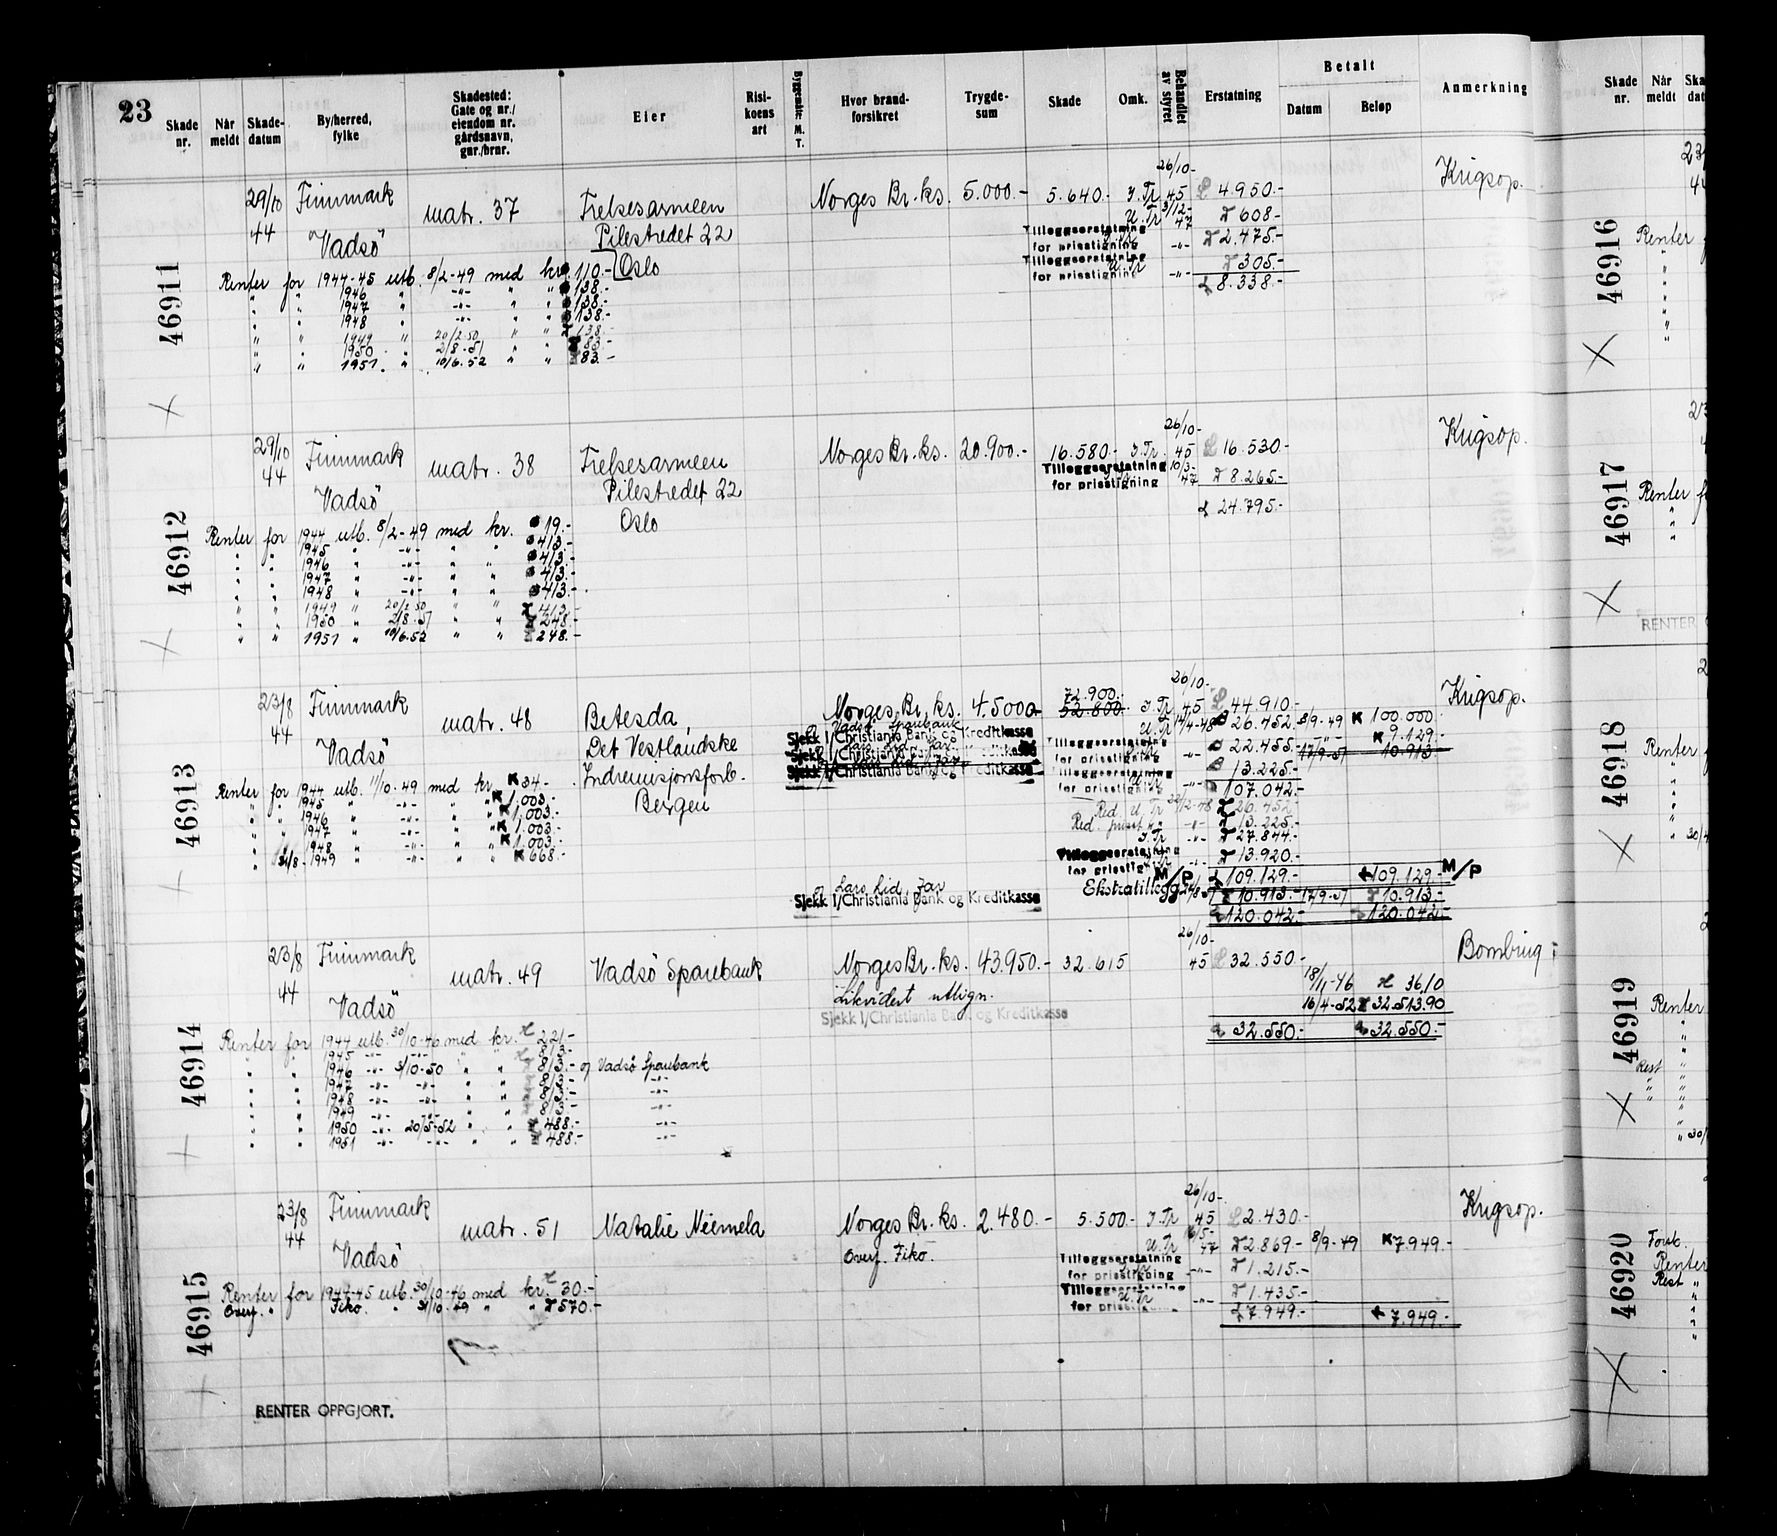 23
Skade nr.
Når meldt
Skade-datum
By/herred, fylke
Skadested: Gate og nr./ eiendom nr. gårdsnavn, gnr./brnr.
Eier
Risi-koens art
Byggemåte M. T.
Hvor brand-forsikret
Trygde-sum
Skade
Omk.
Behandlet av styret
Erstatning
Betalt
Datum
Beløp
Anmerkning
Skade nr.
Når meldt
46911
29/10 44 Finnmark matr. 37 Frelsesarmeen Norges Br.ks. 5.000.- 5.640.- I.Tr. 26/10-45 4.950.- Krigsop.
Vadsö Pilestredet 22 U.Tr 3/12-47 608-
Oslo
Tilleggserstatning for prisstigning -"- 2.475.-
Tilleggserstatning for prisstigning U.Tr -"- 305.-
8.338.-
Renter for 1944-45 utb. 8/2-49 med kr. 110.-
" " 1946 " -"- " " 138.-
" " 1947 " -"- " " 138.-
" " 1948 " -"- " " 138.-
" " 1949 " 20/2.50 " " 138.-
" " 1950 " 2/8-51 " " 83.-
" " 1951 " 10/6.52 " " 83.-
46912
29/10 44 Finnmark matr. 38 Frelsesarmeen Norges Br.ks. 20.900.- 16.580.- I.Tr. 26/10-45 16.530- Krigsop.
Vadsö Pilestredet 22
Oslo
Tilleggserstatning for prisstigning 10/3-47 8.265.-
24.795.-
Renter for 1944 utb. 8/2-49 med kr. 19.-
" " 1945 " -"- " " 413.-
" " 1946 " -"- " " 413.-
" " 1947 " -"- " " 413.-
" " 1948 " -"- " " 413.-
" " 1949 " 20/2.50 " " 413.-
" " 1950 " 2/8.51 " " 248.-
" " 1951 " 10/6.52 " " 248.-
46913
23/8 44 Finnmark matr. 48 Betesda, Norges Br.ks. 45000 72.900.- 52.800.- I.Tr. 26/10-45 44.910.- Krigsop.
Vadsö Det Vestlandske
Indremisjonsforb.
Bergen
Vadsö Sparebank
Sjekk I/Christiania Bank og Kreditkasse
Sjekk I/Christiania Bank og Kreditkasse
Sjekk I/Christiania Bank og Kreditkasse
U.Tr 14/4-48 26.452 8/9-49 K 100.000.-
-"- K 9.129.-
Tilleggserstatning for prisstigning -"- 22.455.- 17/9-51 10.913
Tilleggserstatning for prisstigning U.Tr -"- 13.225.-
107.042.-
Red. U.Tr 26.452.-
Red. prisst. -"- 13.225.-
I.Tr -"- 27.844.-
Tilleggserstatning for prisstigning 13.920.-
M/P 109.129.- 109.129.- M/P
Ekstratillegg 10.913.- 17/9-51 10.913.-
120.042.- 120.042.-
Lars Lid, Jar
Sjekk I/Christiania Bank og Kreditkasse
Renter for 1944 utb. 11/10-49 med kr. K 34.-
" " 1945 " -"- " " K 1.003.-
" " 1946 " -"- " " K 1.003.-
" " 1947 " -"- " " K 1.003.-
" " 1948 " -"- " " K 1.003.-
" 1949 " -"- " " K 668.-
46914
23/8 44 Finnmark matr. 49 Vadsö Sparebank Norges Br.ks. 43.950.- 32.615 26/10-45 32.550.- Bombing
Vadsö Likvidert utlign.
Sjekk I/Christiania Bank og Kreditkasse
18/11-46 36,10
16/4-52 32.513.90
32.550.- 32.550.-
Renter for 1944 utb. 30/10-46 med kr. 221-
" " 1945 -"- -"- " " 813.-
" " 1946 -"- 5/10-50 " " 813.- Vadsö Sparebank
" " 1947 -"- -"- " " 813.- -"-
" " 1948 -"- -"- " " 813.- -"-
" " 1949 -"- -"- " " 813.- -"-
" " 1950 -"- 20/5-52 " " 488.- -"-
" " 1951 -"- -"- " " 488.- -"-
46915
23/8 44 Finnmark matr. 51 Natalie Niemela Norges Br.ks. 2.480.- 5.500.- I.Tr 26/10-45 2.430.- Krigsop.
Vadsö Overf. Fiko. U.Tr 47 2.869- 8/9-49 K 7.949.-
Tilleggserstatning for prisstigning I.Tr -"- 1.215.-
Tilleggserstatning for prisstigning U.Tr -"- 1.435.-
7.949.- 7.949.-
Renter for 1944-45 utb. 30/10-46 med kr. 30.-
Overf. " Fiko. " 31/10.49 " " 570.-
RENTER OPPGJORT.
46916
Renter
46917
Renter
RENTER
46918
Renter
46919
Renter
Rest
46920
Forsk.
Renter
Rest